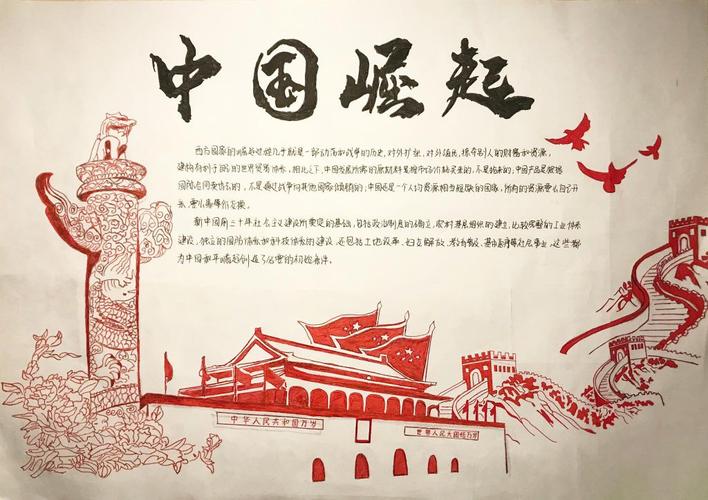 中国崛起
西方国家的崛起过程几乎就是一部动荡和战争的历史，对外扩张，对外殖民，掠夺别人的财富和资源，
建构有利于自己的世界贸易体系，相比之下，中国发展所需的原材料是按市场价格买来的，不是抢来的；中国产品是按照
国际合同卖出去的，不是通过战争向其他国家倾销的；中国还是个人均资源相当短缺的国家，所有的资源要么自己开
去，要么需等价交换。
新中国前三十年社会主义建设所奠定的基础，包括政治制度的确立，农村基层组织的建立，比较完整的工业体系
建设，独立的国防体系和科技体系的建设，还包括土地改革、妇女解放、教育普及、基本医疗等社会事业，这些都
为中国和平崛起创造了必要的初始条件。
中华人民共和国万岁
世界人民大团结万岁